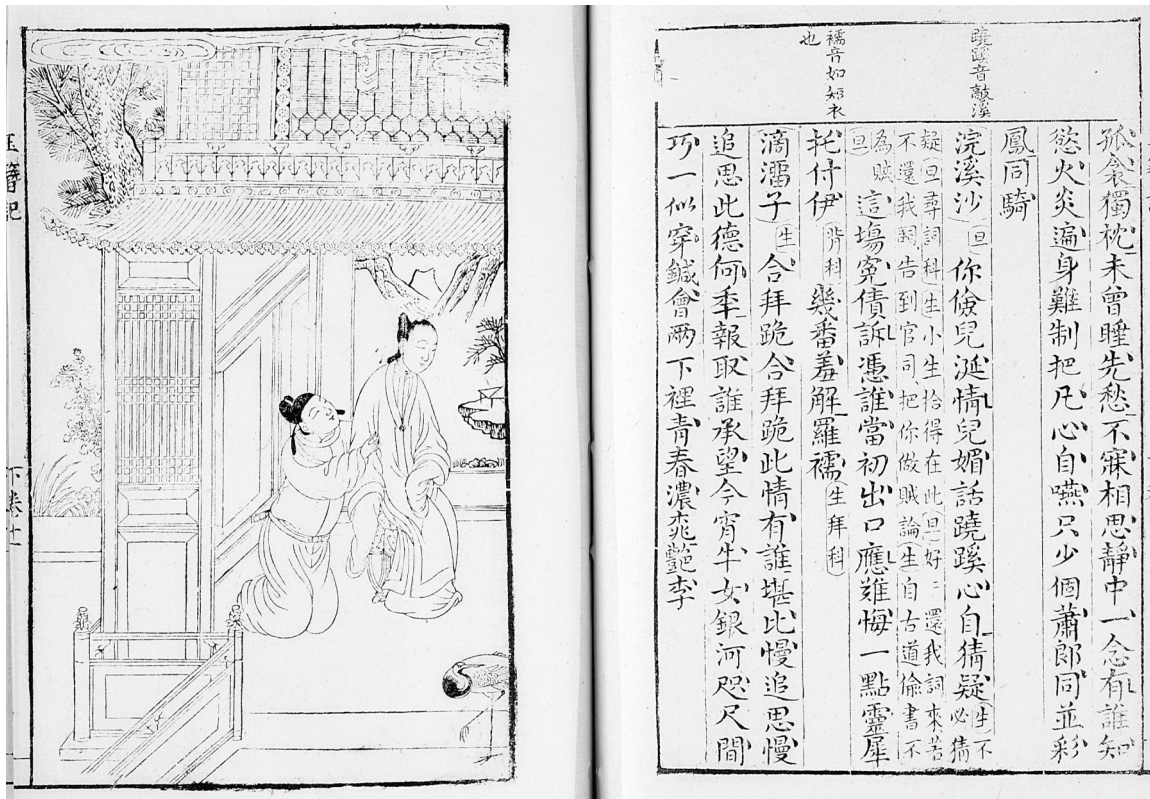 蹺蹊音敲溪
襦音如短衣
也
孤衾獨枕未曾睡先愁不寐相思靜中一念有誰知
慾火炎遍身難制把凡心自嚥只少個蕭郎同並彩
鳳同騎
浣溪沙 旦 你儉兒涎情兒媚話蹺蹊心自猜疑 生 不必猜
疑 旦尋詞科 生 小生拾得在此 旦 好〻還我詞來若
不還我詞告到官司把你做賊論 生 自古道偷書不
為賊 旦 這塲冤債訴憑誰當初出口應難悔一點靈犀
托付伊 背科 幾番羞解羅襦 生拜科
滴溜子 生 合拜跪合拜跪此情有誰堪比慢追思慢
追思此德何年報取誰承望今宵牛女銀河咫尺間
巧一似穿鍼會兩下裡青春濃桃艷李
玉簪記
下卷
十一